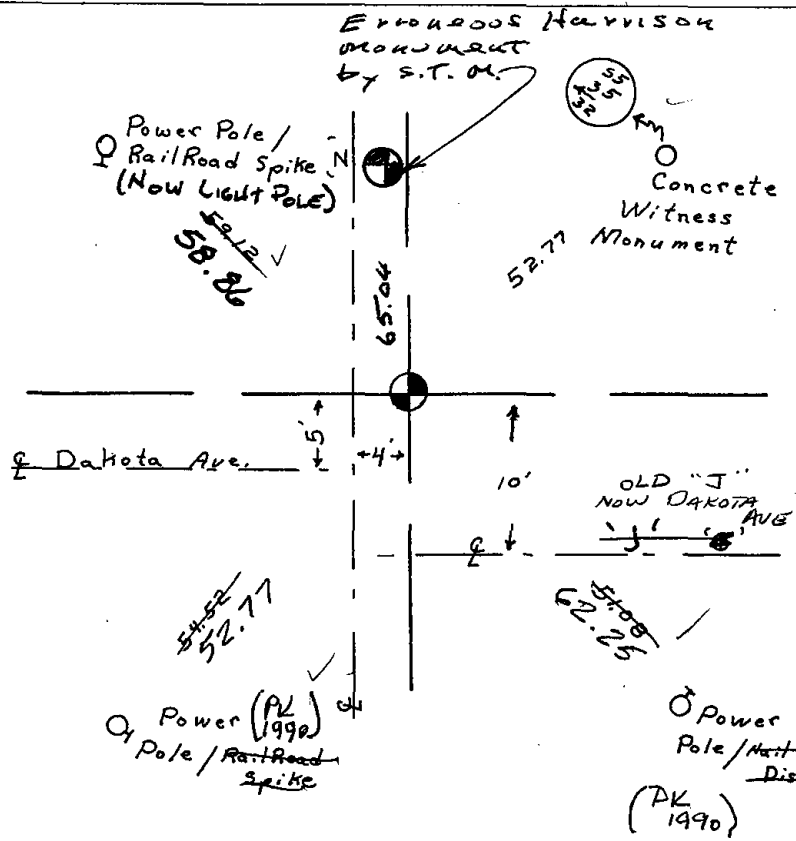 Erroneous Harrison
monument
by S.T.M.
Power Pole /
RailRoad Spike
(NOW LIGHT POLE)
N
59.12
58.86
Concrete
Witness
Monument
52.77
65.04
5'
4'
℄ Dakota Ave.
10'
OLD "J"
NOW DAKOTA
AVE
'J'
℄
54.52
52.77
51.08
62.25
℄
Power (PK
1990)
Pole / RailRoad
Spike
Power
Pole / Nail
Dis
(PK
1990)